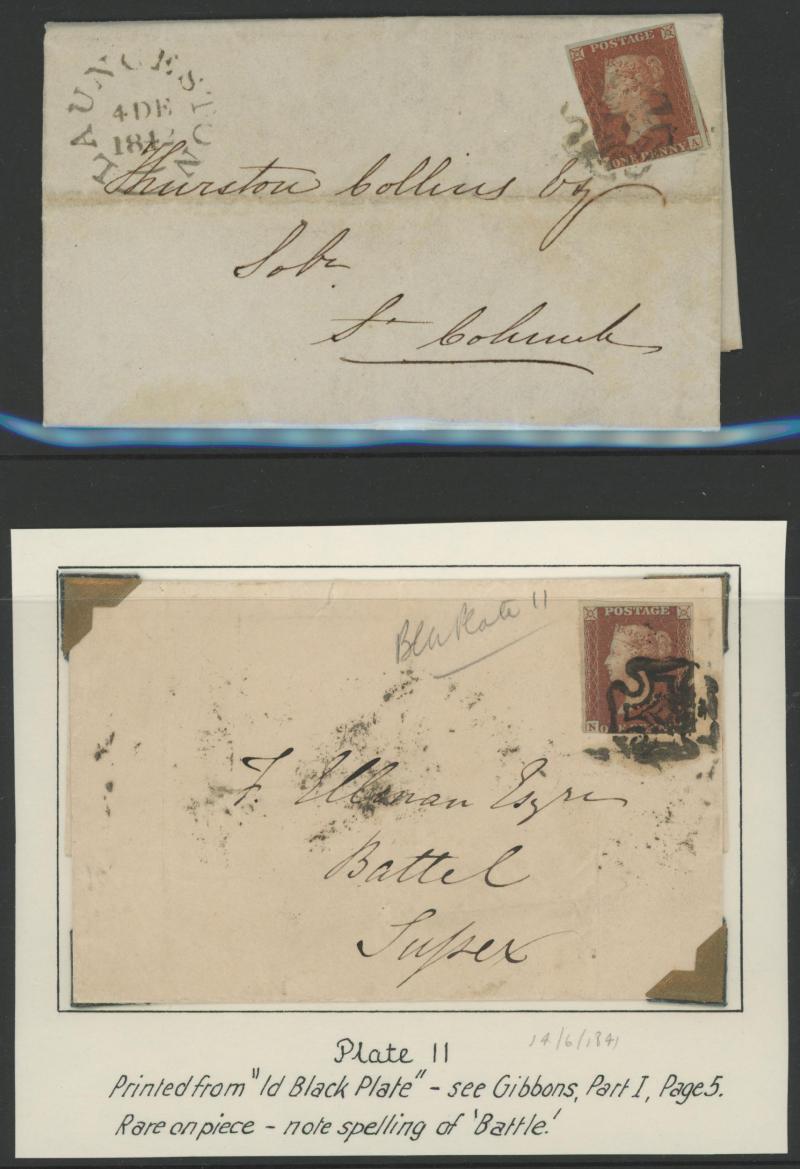 LAUNCESTON
4 DE
1842
POSTAGE
ONE PENNY A
Thurston Collins Esq
Solr
St Columb
Blk Plate 11
POSTAGE
N O
F. Ellman Esqre
Battel
Sussex
14/6/1841
Plate 11
Printed from "1d Black Plate" - see Gibbons, Part I, Page 5.
Rare on piece - note spelling of 'Battle.'